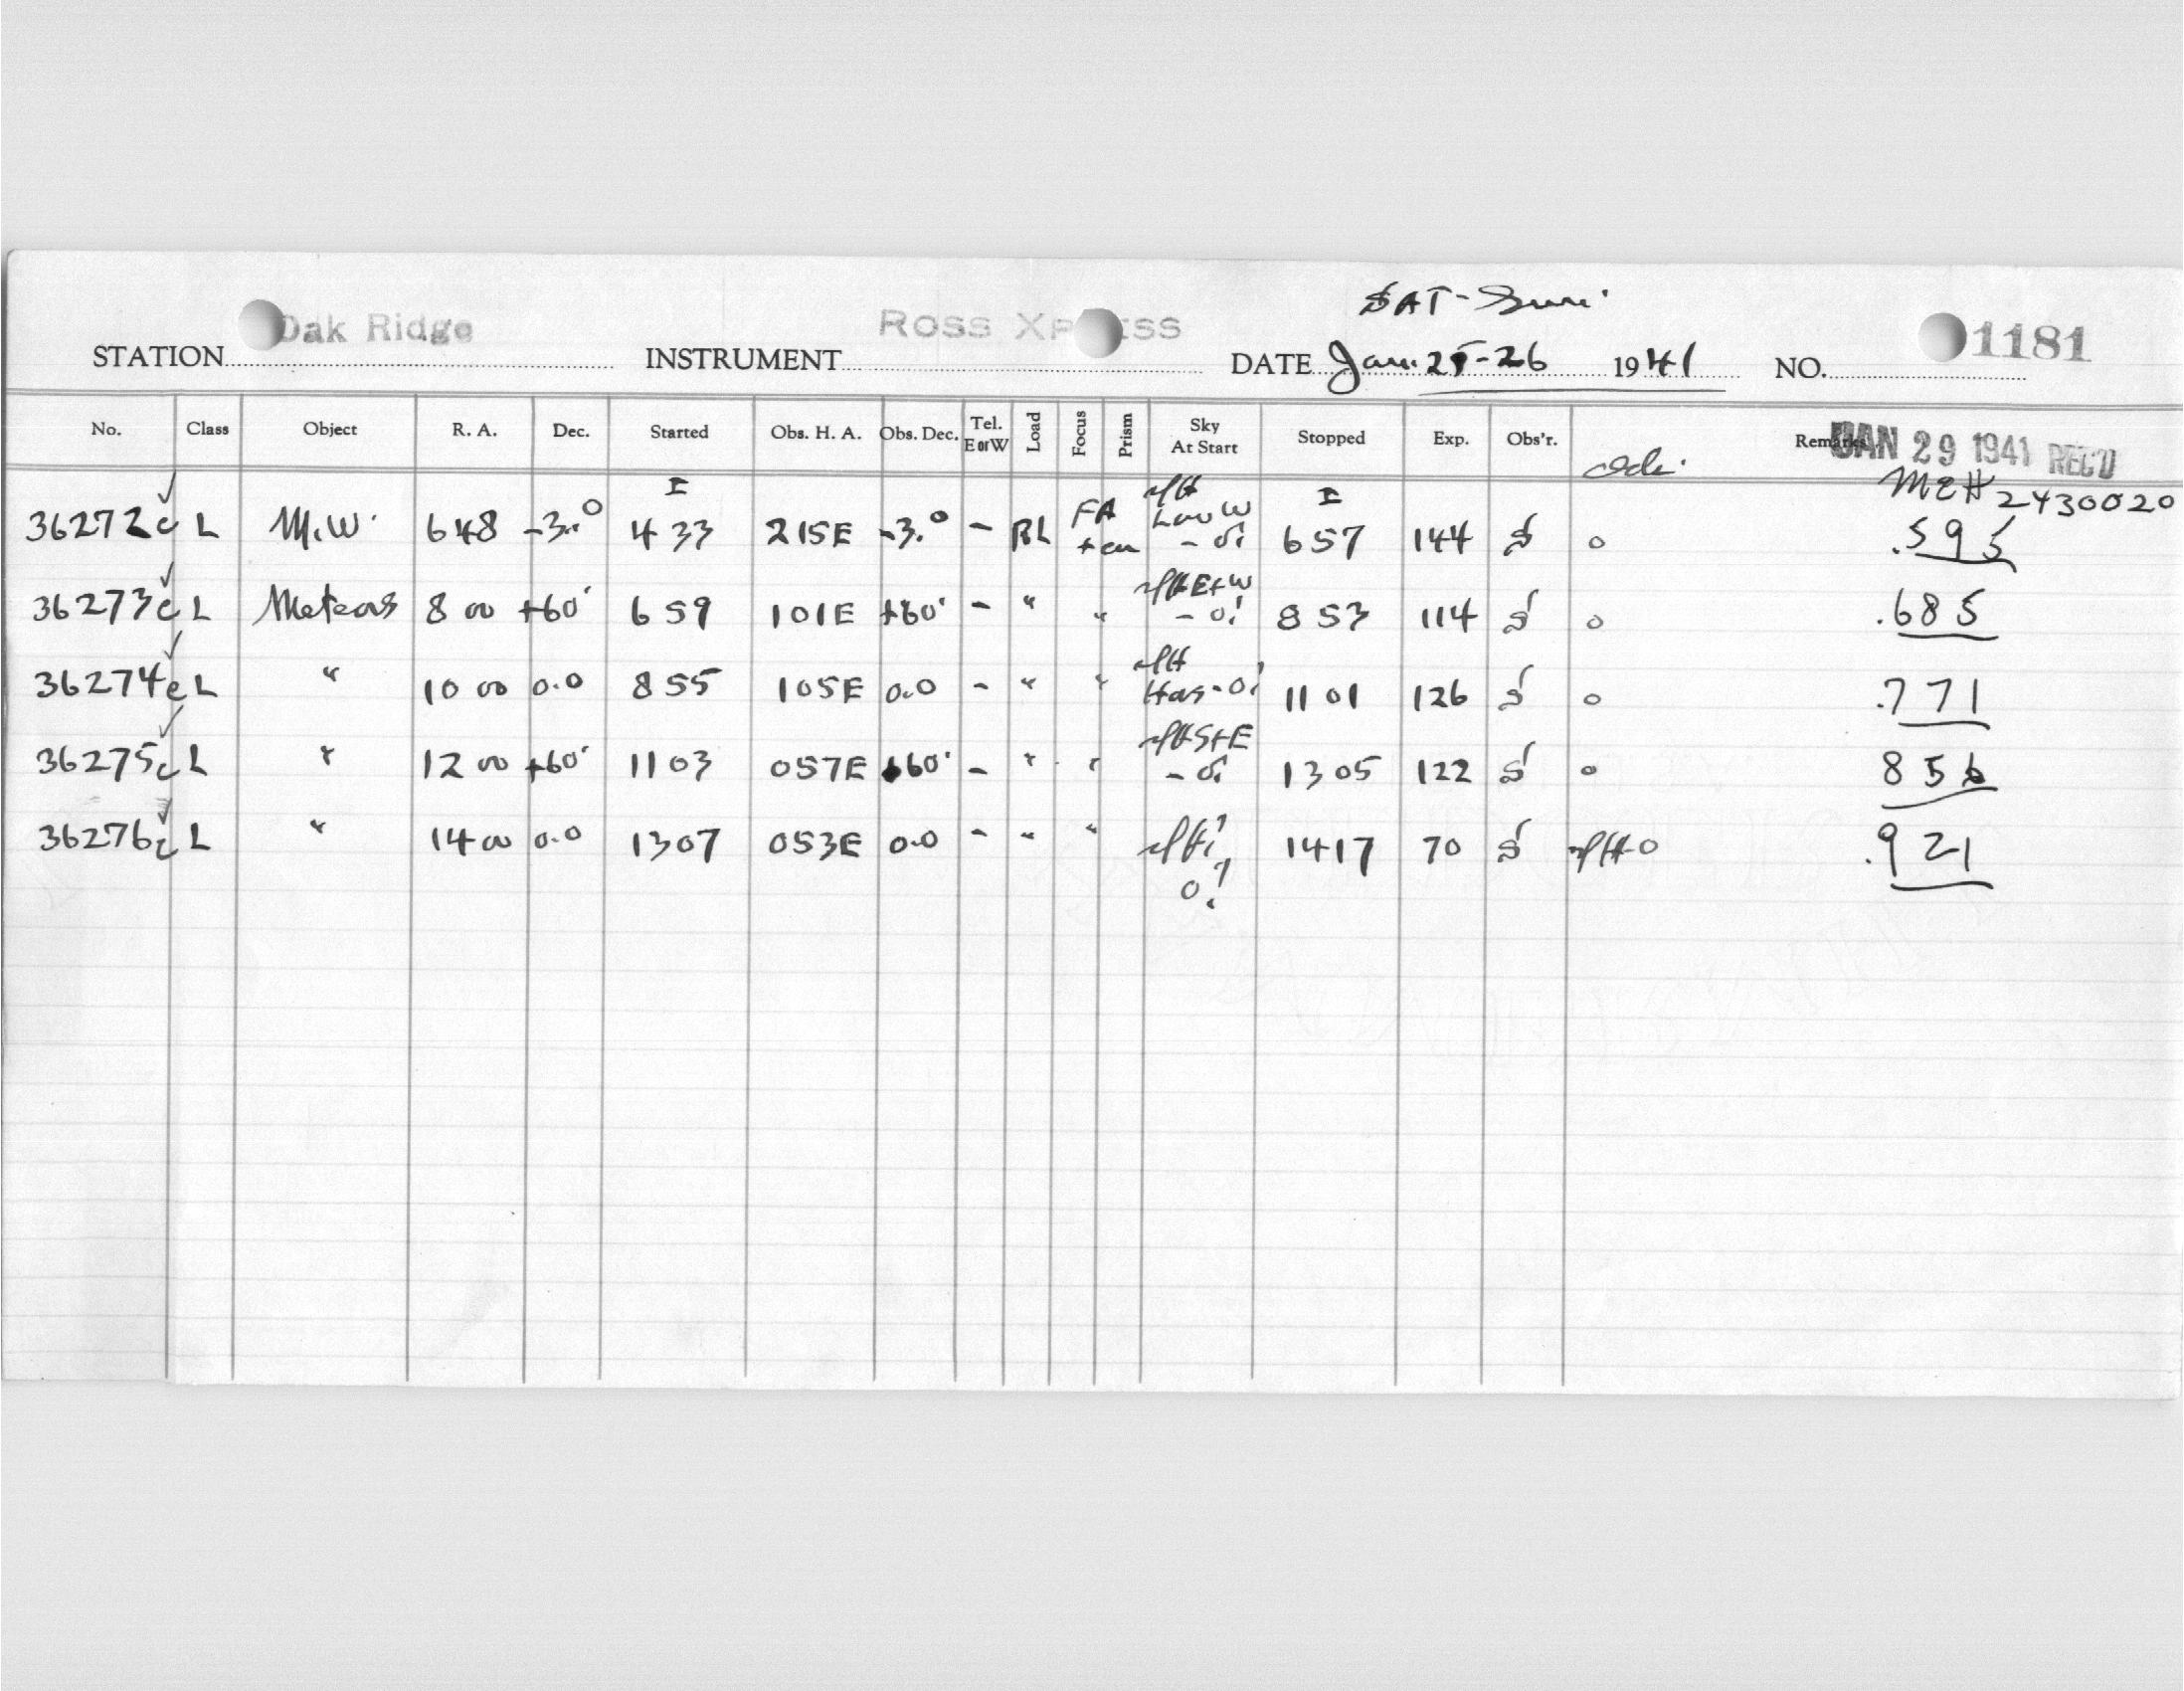 SAT-Sun.
STATION Oak Ridge INSTRUMENT Ross Xpress DATE Jan. 25-26 1941 NO. 1181
No. Class Object R. A. Dec. Started Obs. H. A. Obs. Dec. Tel. E or W Load Focus Prism Sky At Start Stopped Exp. Obs'r. Remarks
JAN 29 1941 REC'D
MEH 2430020
36272c L M.W. 6 48 -3.0 433 215E -3.0 - BL FA Low W 657 144 S 0 .595
36273c L Meteors 8 00 +60 659 101E +60 - " " E+W 853 114 S 0 .685
36274c L " 10 00 0.0 855 105E 0.0 - " " 1101 126 S 0 .771
36275c L " 12 00 +60 1103 057E +60 - " " S+E 1305 122 S 0 856
36276c L " 14 00 0.0 1307 053E 0.0 - " " 1417 70 S .921